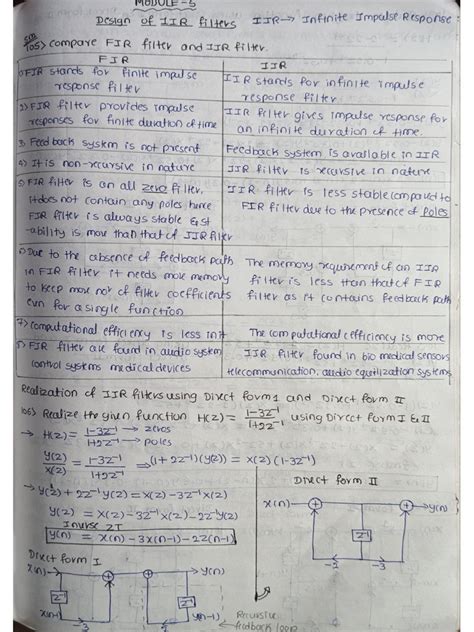 MODULE-5
Design of IIR filters IIR→ Infinite Impulse Response
105) compare FIR filter and IIR filter.
FIR
IIR
1) FIR stands for finite impulse
response filter
IIR stands for infinite impulse
response filter
2) FIR filter provides impulse
responses for finite duration of time
IIR filter gives impulse response for
an infinite duration of time.
3) Feedback system is not present
Feedback system is available in IIR
4) It is non-recursive in nature
IIR filter is recursive in nature
5) FIR filter is an all zero filter.
it does not contain any poles hence
FIR filter is always stable & st
-ability is more than that of IIR filter
IIR filter is less stable compared to
FIR filter due to the presence of poles
6) Due to the absence of feedback path
in FIR filter it needs more memory
to keep more no of filter coefficients
even for a single function
The memory requirement of an IIR
filter is less than that of FIR
filter as it contains feedback path
7) computational efficiency is less in it
The computational efficiency is more
8) FIR filter are found in audio system
control systems medical devices
IIR filter found in bio medical sensors
telecommunication, audio equilization systems
Realization of IIR filters using Direct form 1 and Direct form II
10s) Realize the given function H(z) = 1-3z⁻¹ / 1+2z⁻¹ using Direct form I & II
→ H(z) = 1-3z⁻¹ → zeros / 1+2z⁻¹ → poles
Y(z)/X(z) = 1-3z⁻¹ / 1+2z⁻¹ ⇒ (1+2z⁻¹)(Y(z)) = X(z)(1-3z⁻¹)
→ Y(z) + 2z⁻¹Y(z) = X(z) - 3z⁻¹X(z)
Y(z) = X(z) - 3z⁻¹X(z) - 2z⁻¹Y(z)
Inverse ZT
y(n) = x(n) - 3x(n-1) - 2z(n-1)
Direct form II
x(n)
y(n)
z⁻¹
-2
-3
Direct form I
x(n)
y(n)
z⁻¹
z⁻¹
x(n-1)
-3
y(n-1)
Recursive
feedback loop